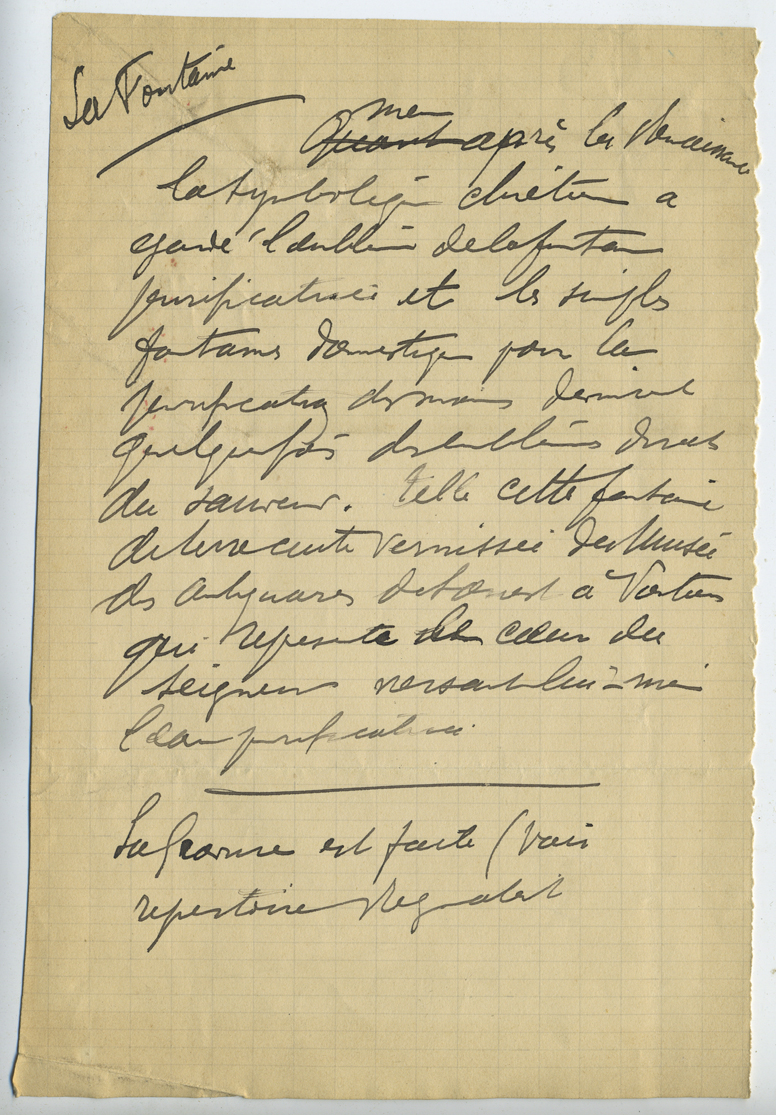 La Fontaine
mem
Quant après la Renaissance
la symbolique chrétien a
gardé l'emblème de la fontaine
purificatrice et les simples
fontaines domestiques pour la
purification des mains devinrent
quelquefois des emblèmes directs
du sauveur. Telle cette fontaine
de terre cuite vernissée du Musée
des antiquaires de l'ouest à Poitiers
qui represente le cœur du
Seigneur versant lui-même
l'eau purificatrice
La gravure est faite (voir
repertoire